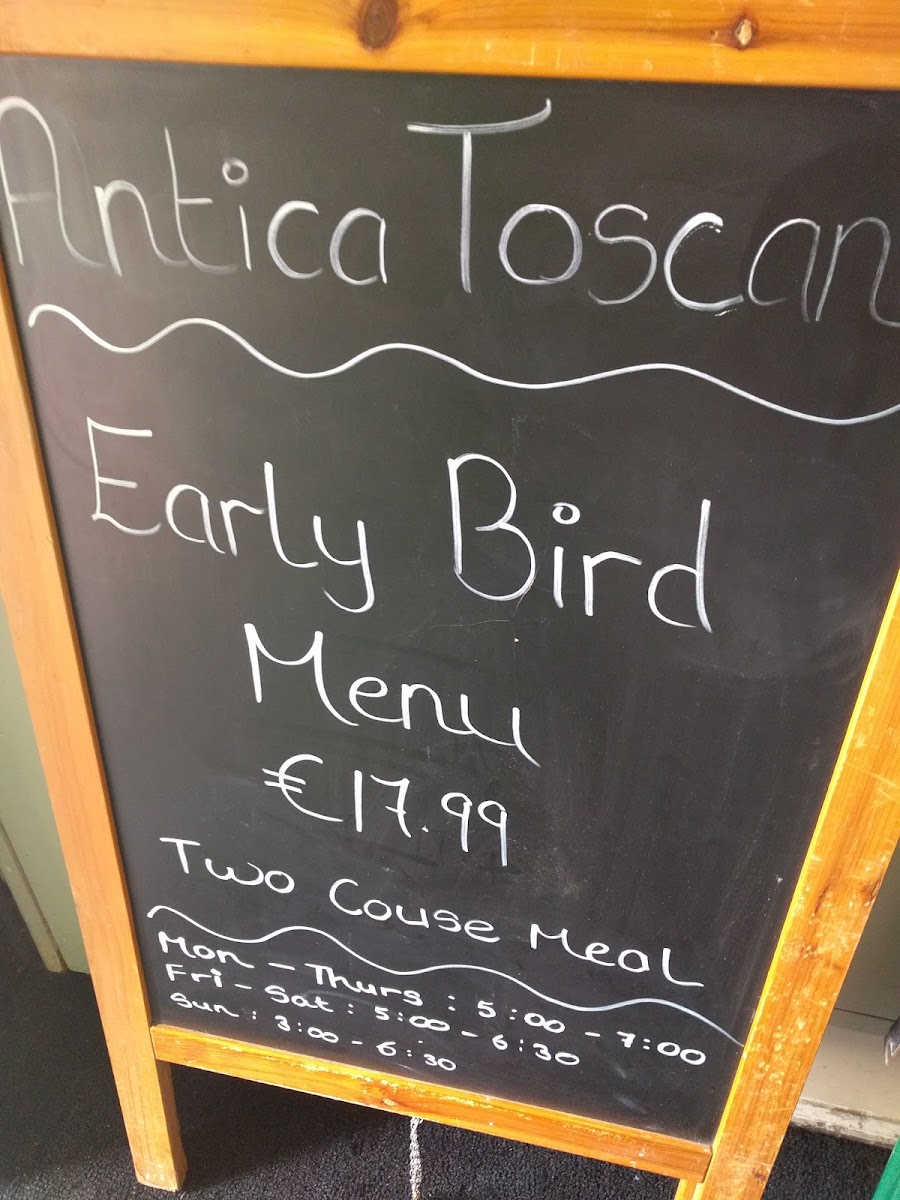 Antica Toscan
Early Bird
Menu
€17.99
Two Couse Meal
Mon - Thurs : 5:00 - 7:00
Fri - Sat : 5:00 - 6:30
Sun : 3:00 - 6:30